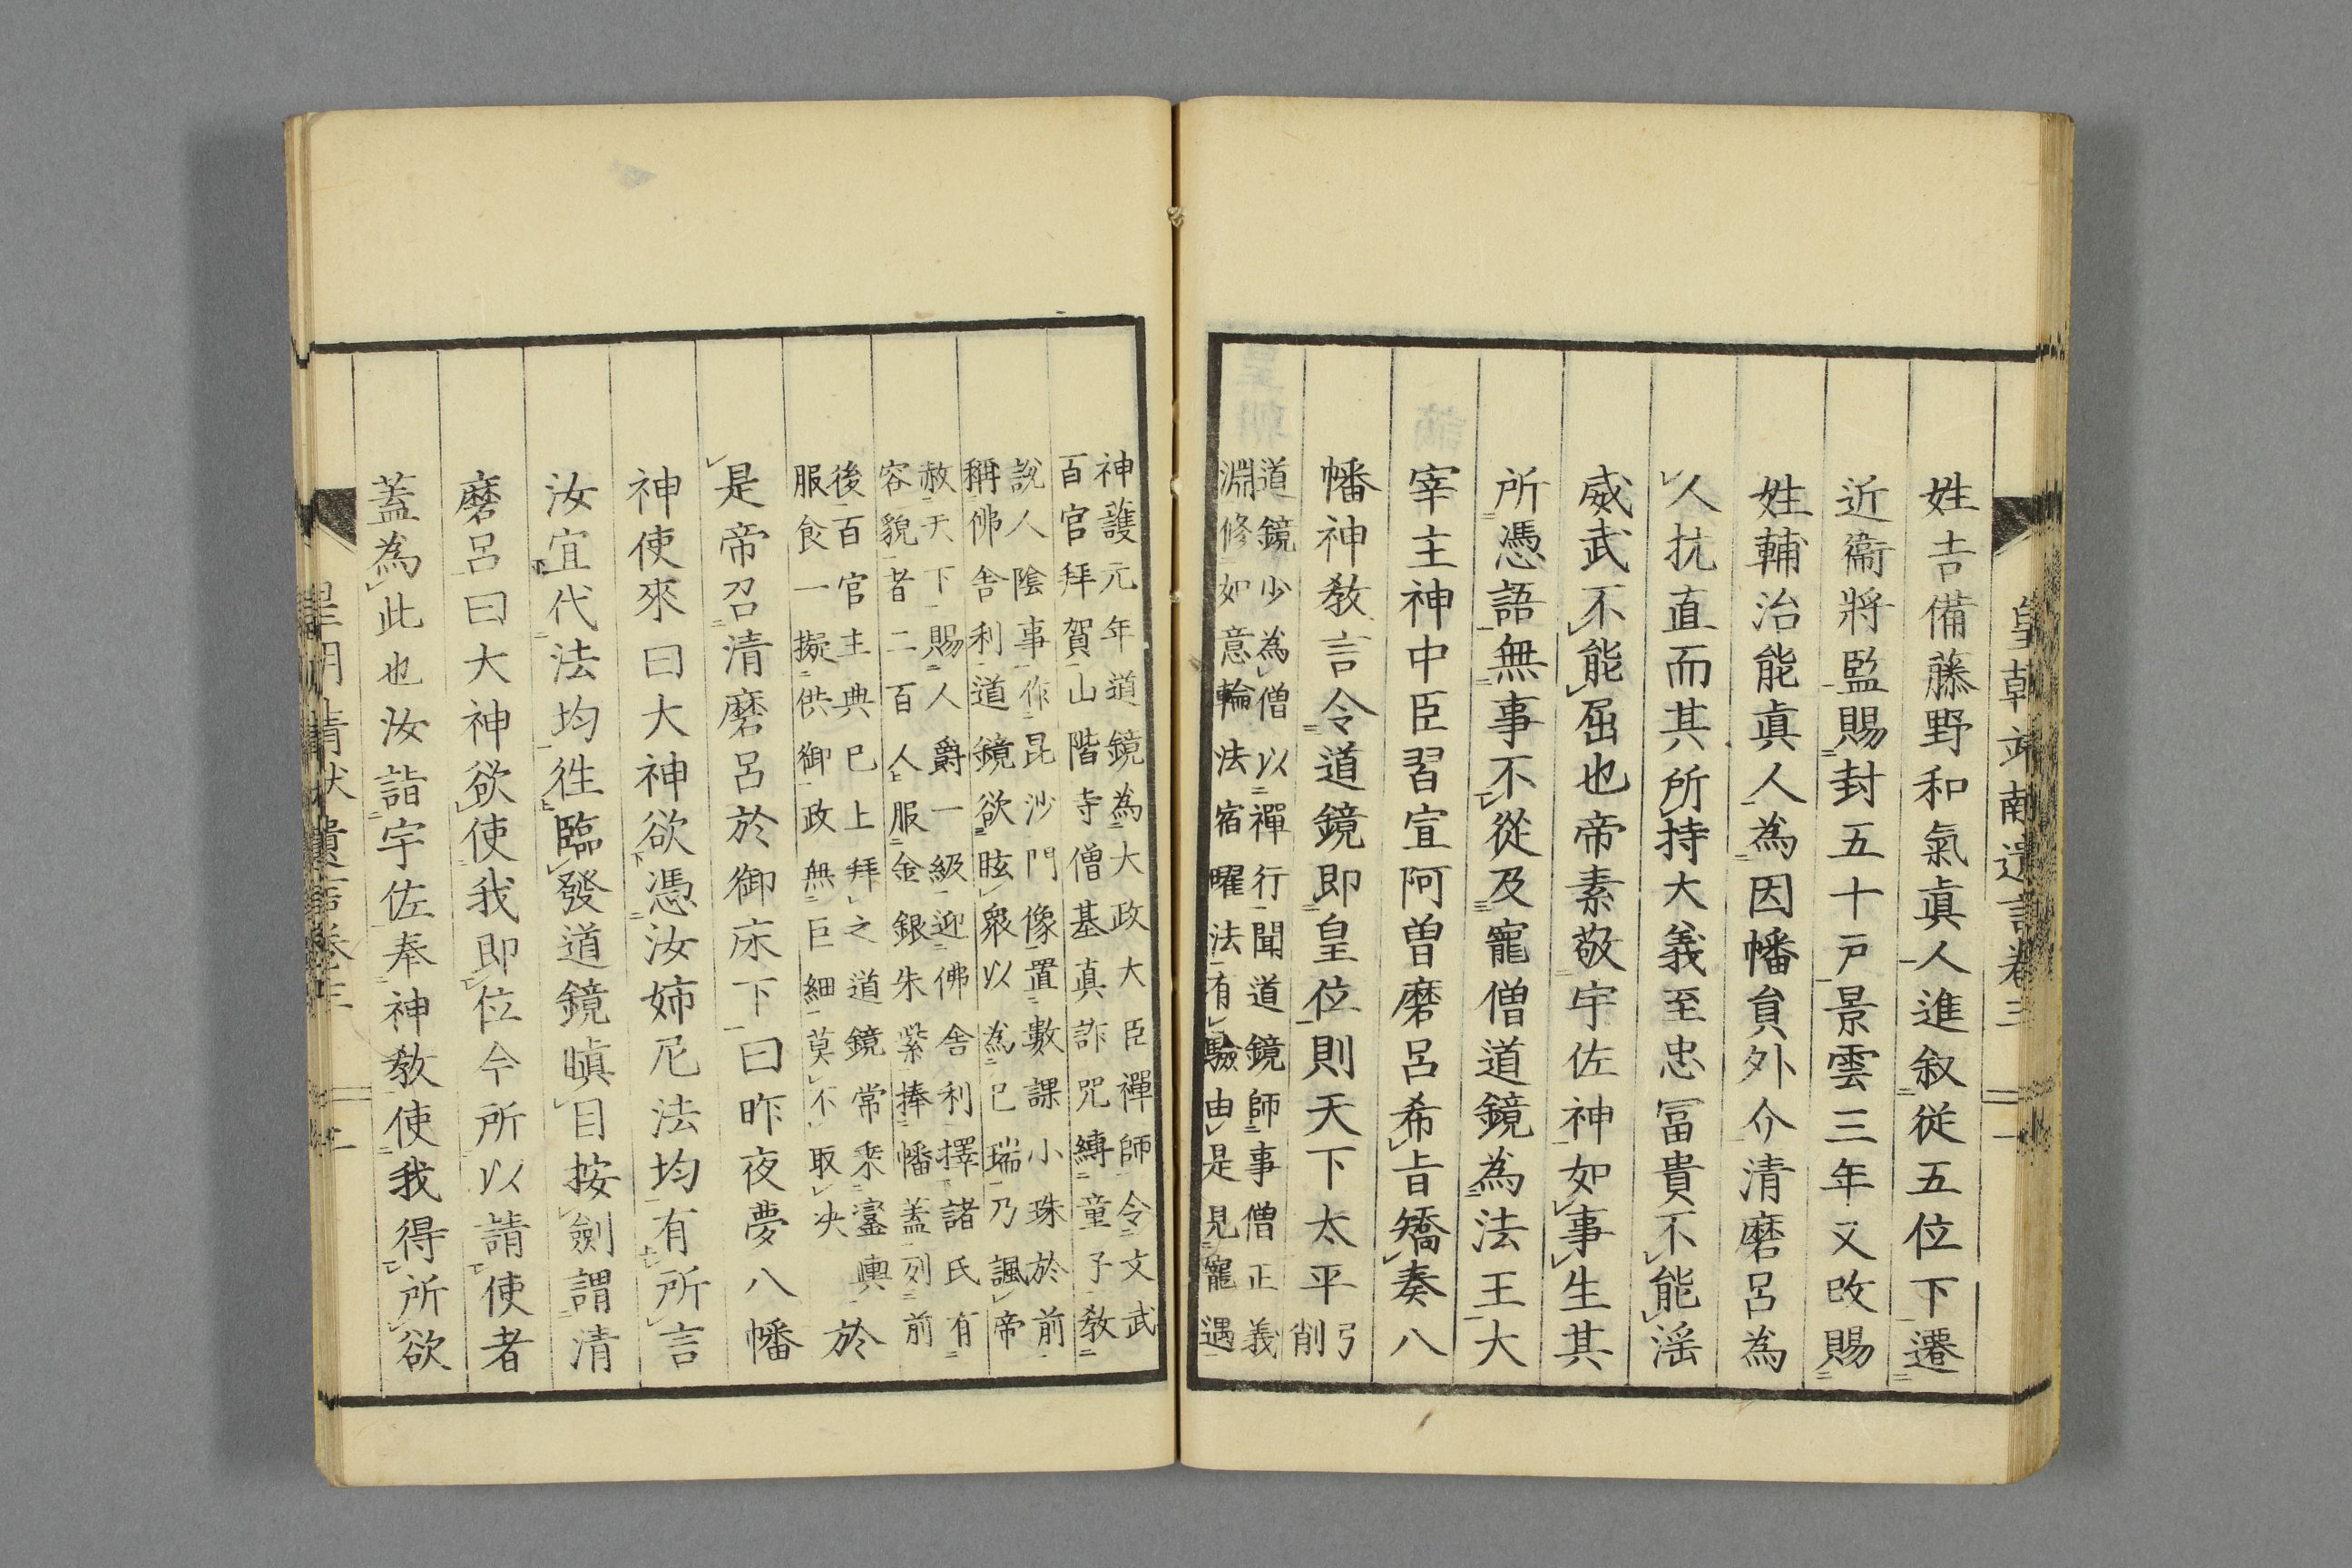 姓吉備藤野和氣眞人進敘從五位下遷
近衞將監賜封五十戸景雲三年又改賜
姓輔治能眞人為因幡員外介清磨呂為
人抗直而其所持大義至忠冨貴不能滛
威武不能屈也帝素敬宇佐神如事生其
所憑語無事不從及寵僧道鏡為法王大
宰主神中臣習宜阿曽磨呂希旨矯奏八
幡神教言令道鏡即皇位則天下太平弓
削
道鏡少為僧以禪行聞道鏡師事僧正義
淵修如意輪法宿曜法有驗由是見寵遇
神護元年道鏡為大政大臣禪師令文武
百官拜賀山階寺僧基真詐咒縛童子教
說人隂事作昆沙門像置數課小珠於前
稱佛舎利道鏡欲眩衆以為已瑞乃諷帝
赦天下賜人爵一級迎佛舎利擇諸氏有
容貌者二百人服金銀朱紫捧幡蓋列前
後百官主典已上拜之道鏡常乘鸞輿
服食一擬供御政無巨細莫不取决
於
是帝召清磨呂於御床下曰昨夜夢八幡
神使來曰大神欲憑汝姉尼法均有所言
汝宜代法均徃臨發道鏡瞋目按劍謂清
磨呂曰大神欲使我即位今所以請使者
蓋為此也汝詣宇佐奉神教使我得所欲